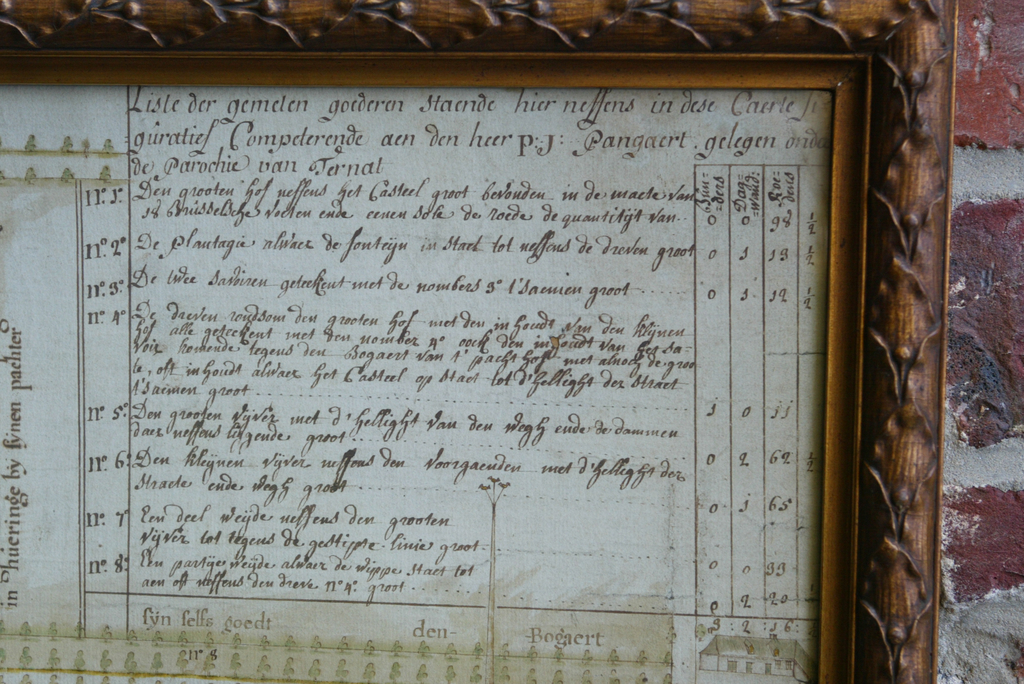 Liste der gemeten goederen staende hier neffens in dese Caerte fi
guratief Competerende aen den heer P:J: Pangaert gelegen onde
de Parochie van Ternat
Bun-
=ders
Dag-
=wand:
Roe-
dens
n.º 1º Den grooten hof neffens het Casteel groot bevonden in de maete van
18 Brusselsche voeten ende eenen de roede de quantitijt van 0 0 98 ½
n.º 2º De plantagie alwaer de fonteijn in staet tot neffens de dreven groot 0 1 13 ½
n.º 3º De twee geteekent met de nombers 3º t'saemen groot 0 1 12 ½
n.º 4º De dreven rondsom den grooten hof met den inhoudt van den kleijnen
hof alle geteekent met den nomber 4º oock den inhoudt van
komende tegens den Bogaert van t' pacht hof met alnoch de
oft inhoudt alwaer het Casteel op staet tot d'hellight der straet
t'saemen groot 1 0 11
n.º 5º Den grooten vijver met d'hellight van den wegh ende de dammen
daer neffens liggende groot 0 2 62 ½
n.º 6º Den kleijnen vijver neffens den voorgaenden met d'hellight der
straete ende wegh groot 0 1 65
n.º 7 Een deel weijde neffens den grooten
vijver tot tegens de gestipte linie groot 0 0 33
n.º 8º Een partije weijde alwaer de wippe staet tot
aen oft neffens den dreve n.º 4º groot 0 2 20
3 : 2 : 16 :
in 'thueringe by synen pachter
syn selfs goedt
den- Bogaert
n.º 8